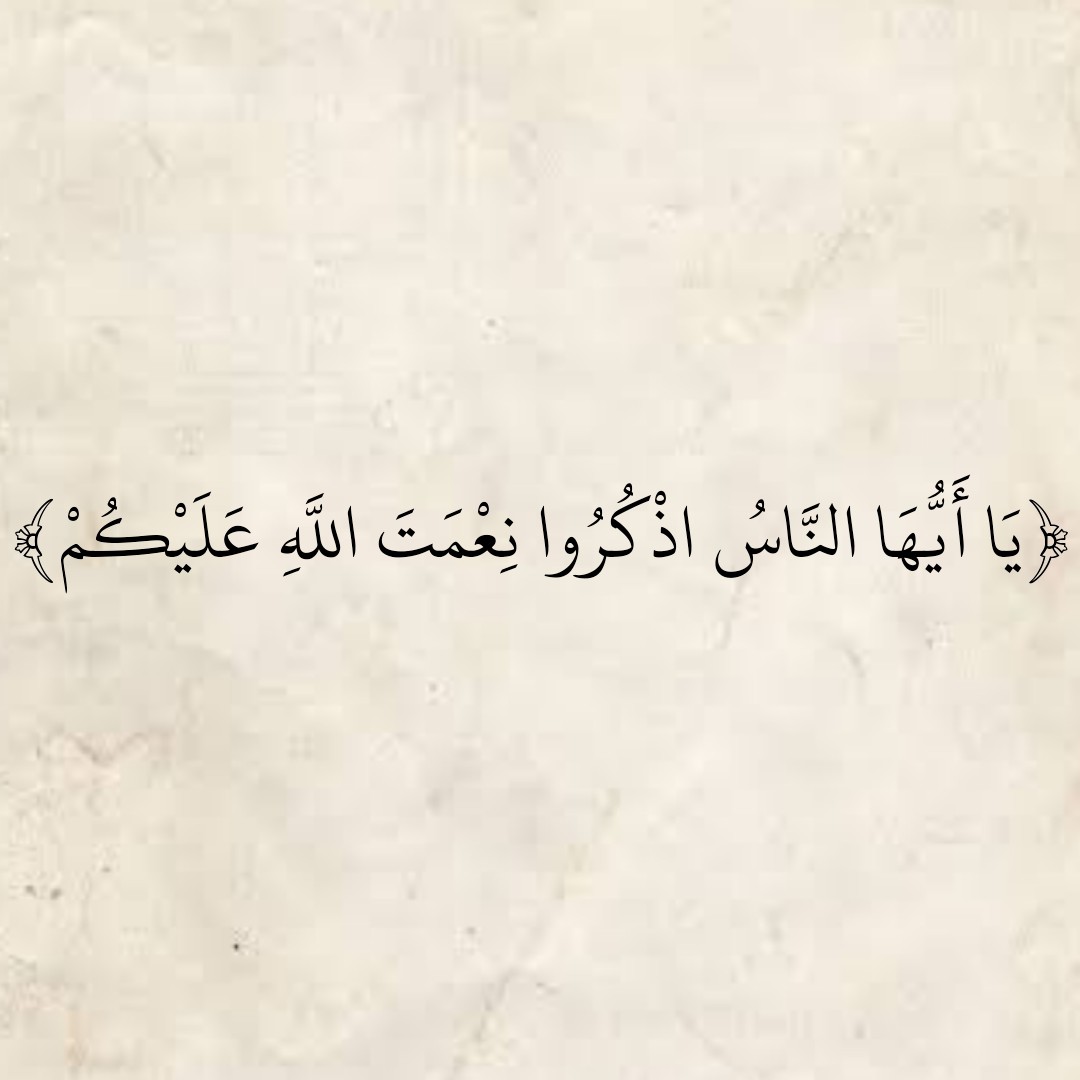 ﴿يَا أَيُّهَا النَّاسُ اذْكُرُوا نِعْمَتَ اللَّهِ عَلَيْكُمْ﴾